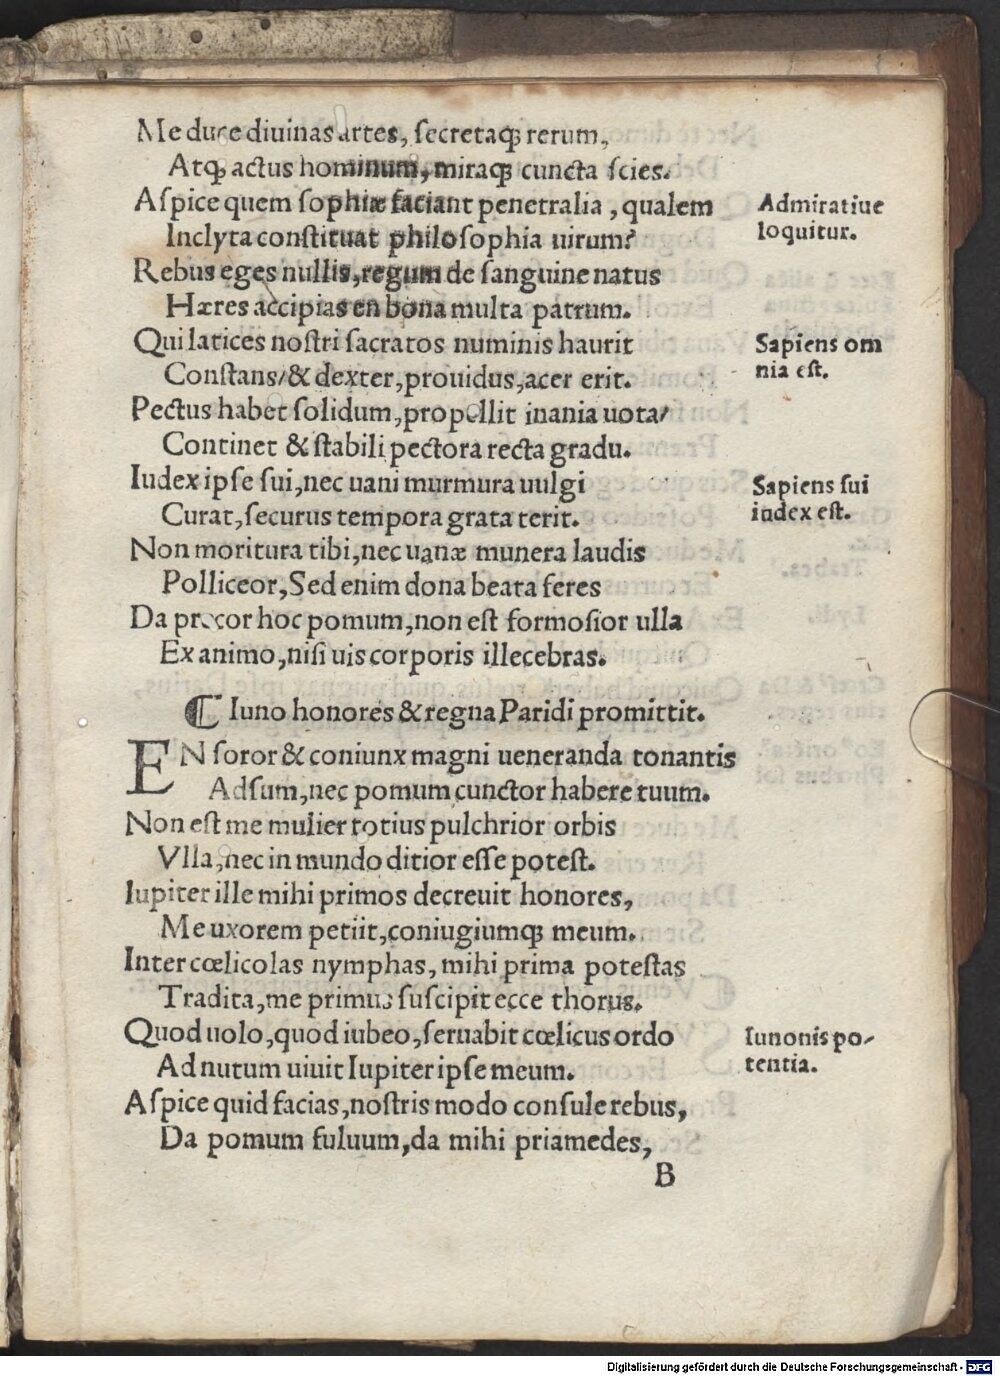 Me duce diuinas artes, secretaqꝫ rerum,
Atqꝫ actus hominum, miraqꝫ cuncta scies.
Aspice quem sophiæ faciant penetralia, qualem
Inclyta constituat philosophia uirum?
Admiratiue
loquitur.
Rebus eges nullis, regum de sanguine natus
Hæres accipias en bona multa patrum.
Qui latices nostri sacratos numinis haurit
Constans/ & dexter, prouidus, acer erit.
Sapiens om
nia est.
Pectus habet solidum, propellit inania uota/
Continet & stabili pectora recta gradu.
Iudex ipse sui, nec uani murmura uulgi
Curat, securus tempora grata terit.
Sapiens sui
iudex est.
Non moritura tibi, nec uanæ munera laudis
Polliceor, Sed enim dona beata feres
Da precor hoc pomum, non est formosior ulla
Ex animo, nisi uis corporis illecebras.
¶ Iuno honores & regna Paridi promittit.
EN soror & coniunx magni ueneranda tonantis
Adsum, nec pomum cunctor habere tuum.
Non est me mulier totius pulchrior orbis
Vlla, nec in mundo ditior esse potest.
Iupiter ille mihi primos decreuit honores,
Me uxorem petiit, coniugiumqꝫ meum.
Inter cœlicolas nymphas, mihi prima potestas
Tradita, me primus suscipit ecce thorus.
Quod uolo, quod iubeo, seruabit cœlicus ordo
Ad nutum uiuit Iupiter ipse meum.
Iunonis po-
tentia.
Aspice quid facias, nostris modo consule rebus,
Da pomum fuluum, da mihi priamedes,
B
Digitalisierung gefördert durch die Deutsche Forschungsgemeinschaft - DFG